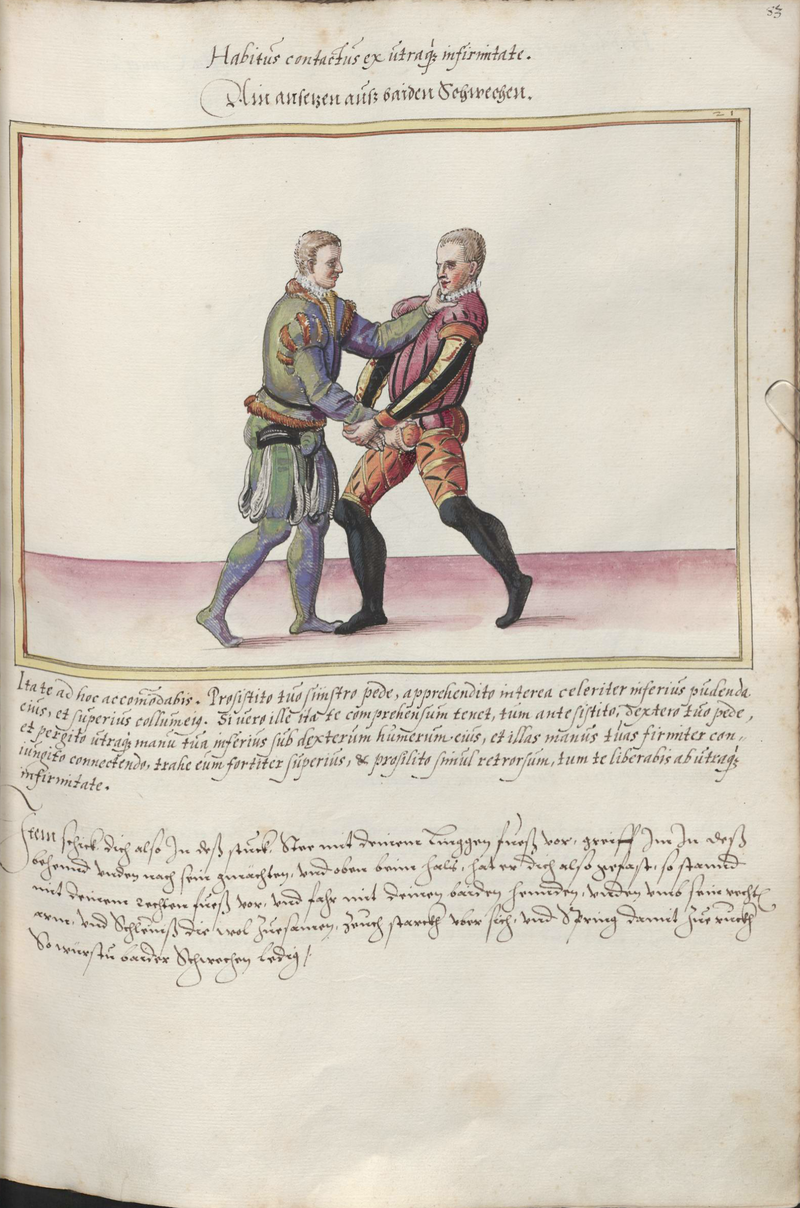 83
Habitus contactus ex utraq́; infirmitate.
Ain ansetzen ausz baiden Schwechen.
21
Ita te ad hoc accomodabis. Prosistito tuo sinistro pede, apprehendito interea celeriter inferius pudenda
eius, et superius collum eiq. Si uero ille ita te comprehensum tenet, tum antesistito, dextero tuo pede,
et pergito utraq; manu tua inferius sub dexterum humerum eius, et illas manus tuas firmiter con-
iungito connectendo, trahe eum fortiter superius, & prosilito simul retrorsum, tum te liberabis ab utraq́;
infirmitate.
Item schick dich also In desz stuck. Stee mit deinem Linggen fuesz vor, greiff Im In desz
behennd unden nach sein gmachten, und oben beim hals, hat er dich also gefast, so stannd
mit deinem rechten fuesz vor, und fahr mit deinen baiden hennden, unden umb sein recht
arm, und Schleusz die wol zuesamen, zeuch starckh uber sich, und Spring damit zue ruckh
So würstu baider Schwechen ledig /.